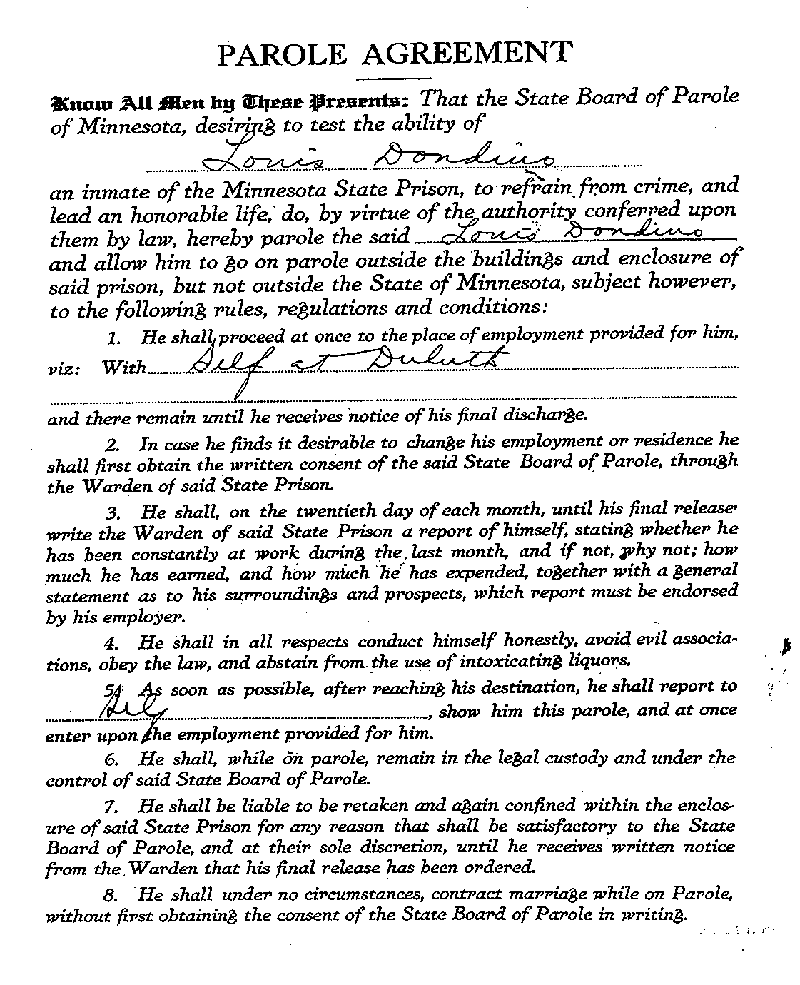 PAROLE AGREEMENT
Know All Men by These Presents: That the State Board of Parole
of Minnesota, desiring to test the ability of
Louis Dondino
an inmate of the Minnesota State Prison, to refrain from crime, and
lead an honorable life, do, by virtue of the authority conferred upon
them by law, hereby parole the said Louis Dondino
and allow him to go on parole outside the buildings and enclosure of
said prison, but not outside the State of Minnesota, subject however,
to the following rules, regulations and conditions:
1. He shall proceed at once to the place of employment provided for him,
viz: With Self at Duluth
and there remain until he receives notice of his final discharge.
2. In case he finds it desirable to change his employment or residence he
shall first obtain the written consent of the said State Board of Parole, through
the Warden of said State Prison.
3. He shall, on the twentieth day of each month, until his final release
write the Warden of said State Prison a report of himself, stating whether he
has been constantly at work during the last month, and if not, why not; how
much he has earned, and how much he has expended, together with a general
statement as to his surroundings and prospects, which report must be endorsed
by his employer.
4. He shall in all respects conduct himself honestly, avoid evil associa-
tions, obey the law, and abstain from the use of intoxicating liquors.
5. As soon as possible, after reaching his destination, he shall report to
Self, show him this parole, and at once
enter upon the employment provided for him.
6. He shall, while on parole, remain in the legal custody and under the
control of said State Board of Parole.
7. He shall be liable to be retaken and again confined within the enclos-
ure of said State Prison for any reason that shall be satisfactory to the State
Board of Parole, and at their sole discretion, until he receives written notice
from the Warden that his final release has been ordered.
8. He shall under no circumstances, contract marriage while on Parole,
without first obtaining the consent of the State Board of Parole in writing.